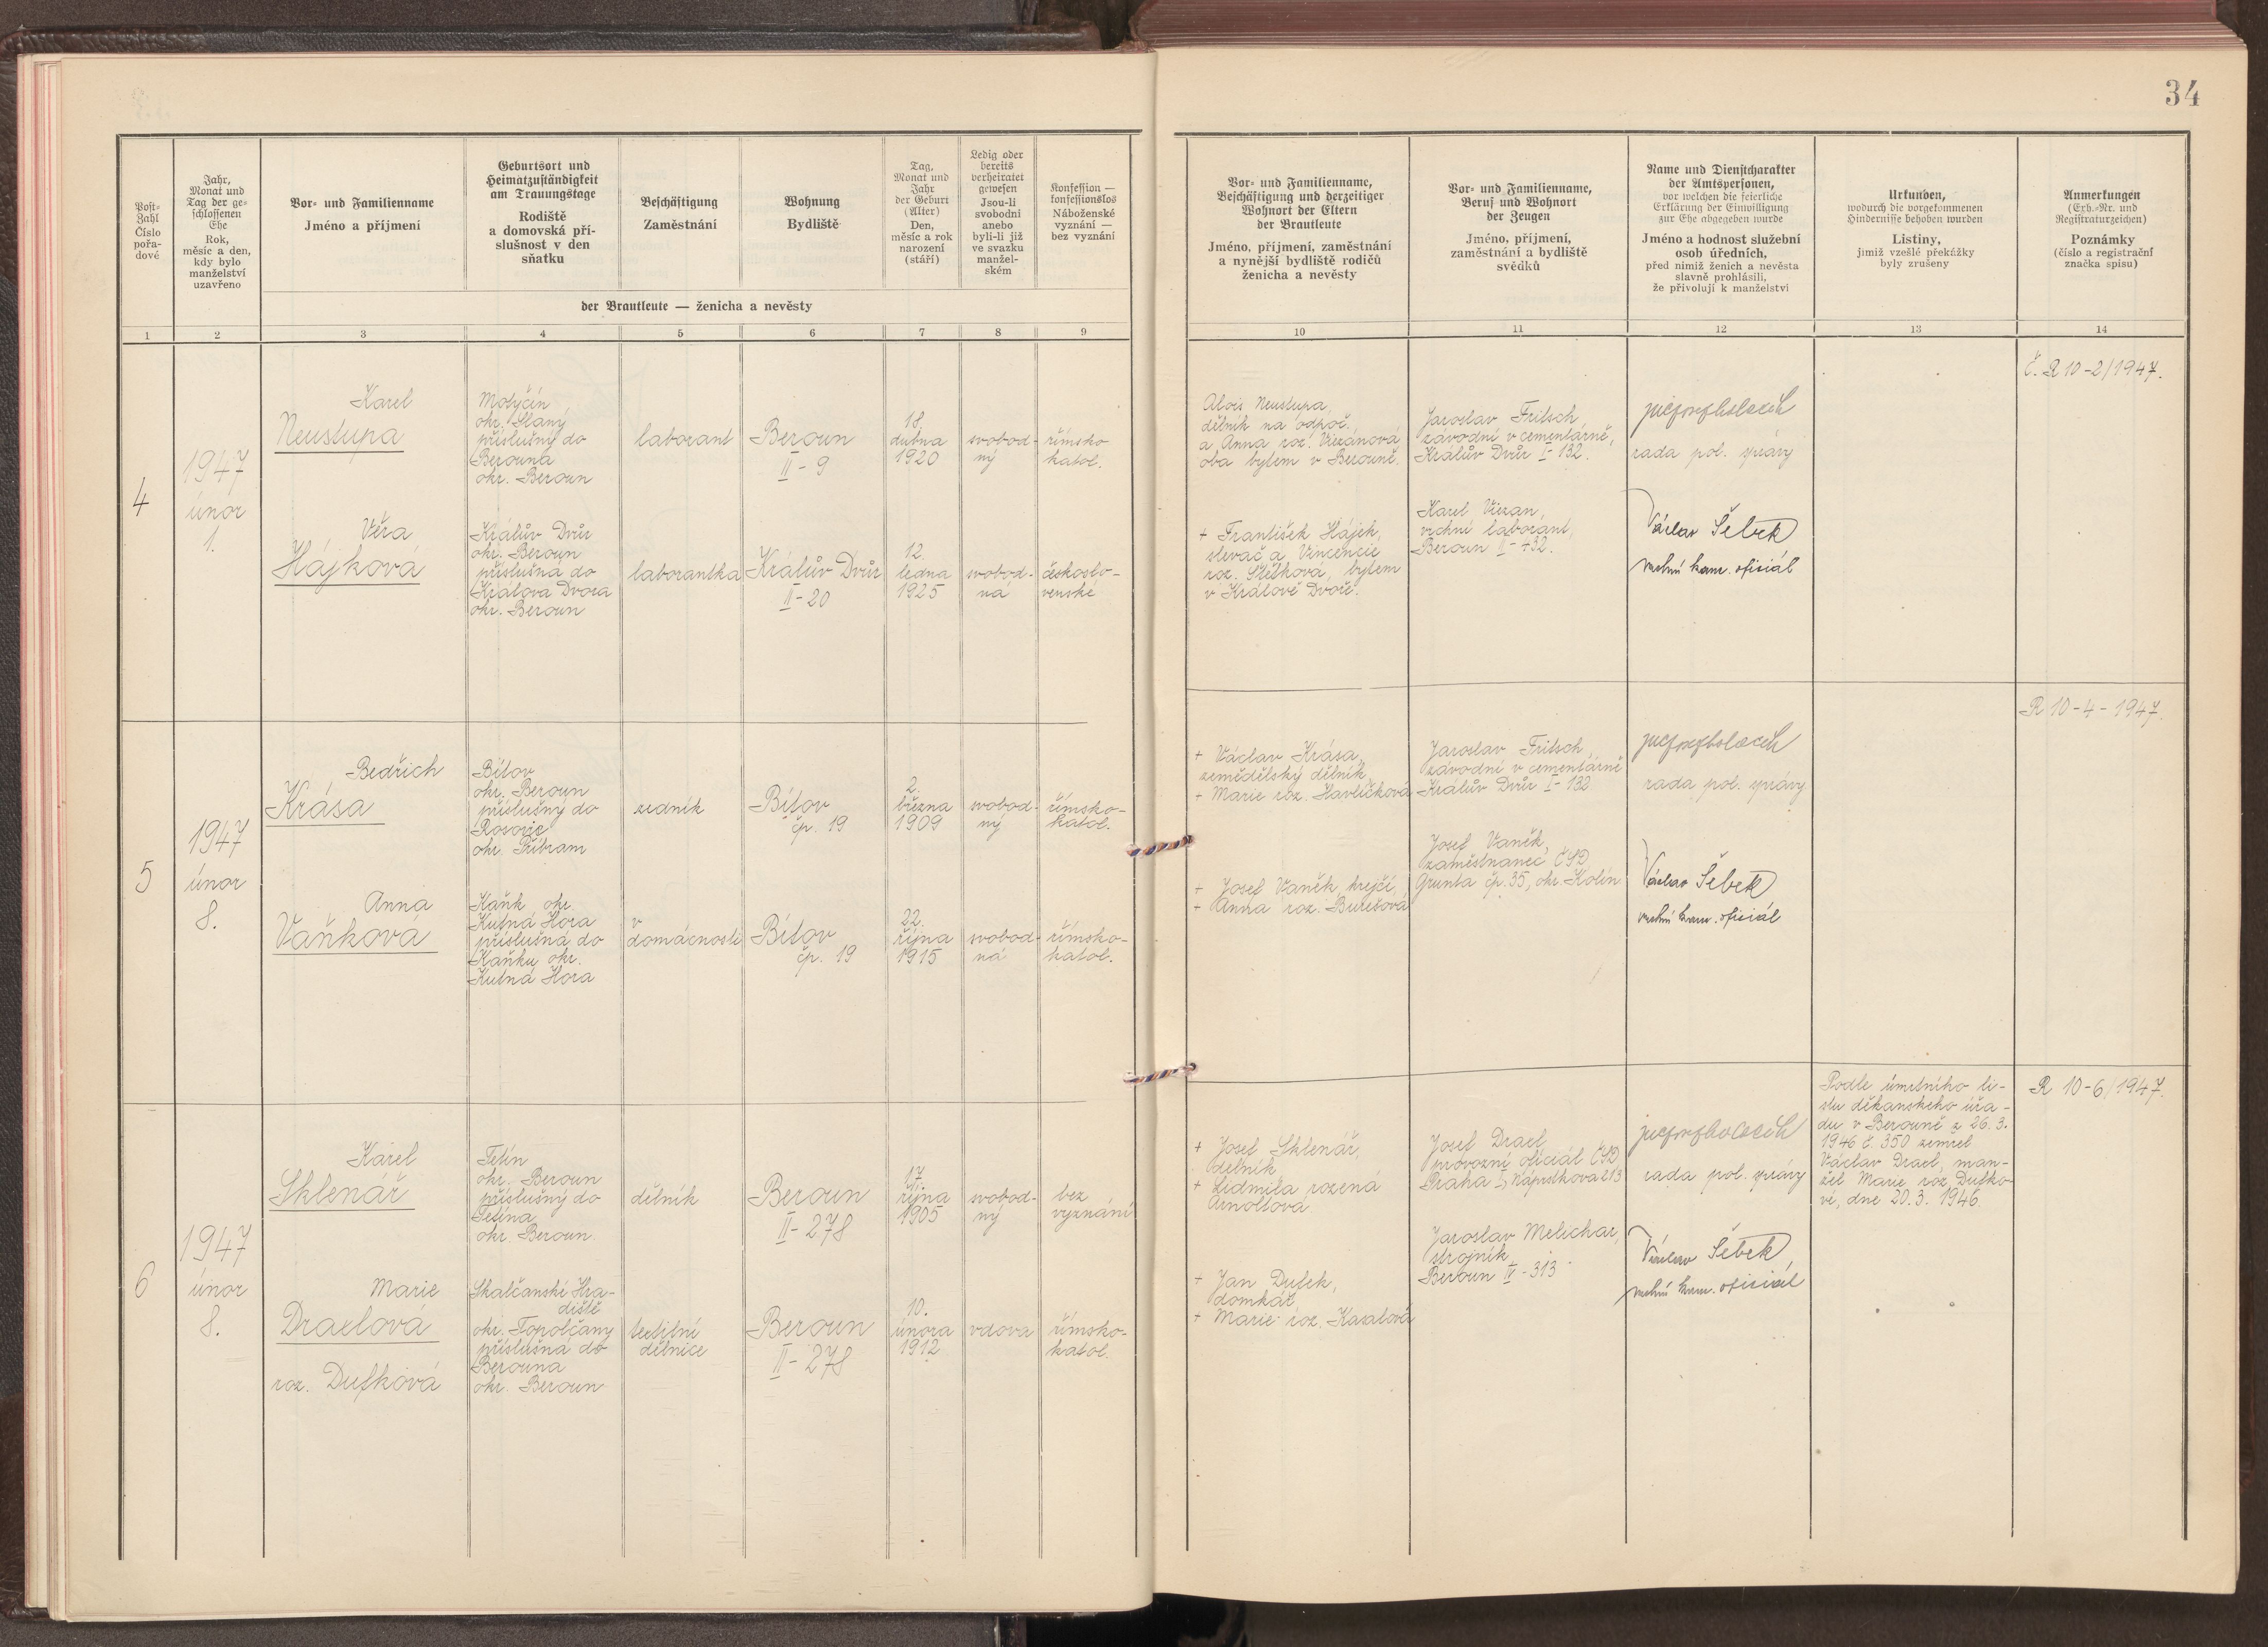 34
Post-
Zahl
Číslo
pořa-
dové
Jahr,
Monat und
Tag der ge-
schlossenen
Ehe
Rok,
měsíc a den,
kdy bylo
manželství
uzavřeno
Vor- und Familienname
Jméno a příjmení
Geburtsort und
Heimatzuständigkeit
am Trauungstage
Rodiště
a domovská pří-
slušnost v den
sňatku
Beschäftigung
Zaměstnání
Wohnung
Bydliště
Tag,
Monat und
Jahr
der Geburt
(Alter)
Den,
měsíc a rok
narození
(stáří)
Ledig oder
bereits
verheiratet
gewesen
Jsou-li
svobodni
anebo
byli-li již
ve svazku
manžel-
ském
Konfession —
konfessionslos
Náboženské
vyznání —
bez vyznání
der Brautleute — ženicha a nevěsty
Vor- und Familienname,
Beschäftigung und derzeitiger
Wohnort der Eltern
der Brautleute
Jméno, příjmení, zaměstnání
a nynější bydliště rodičů
ženicha a nevěsty
Vor- und Familienname,
Beruf und Wohnort
der Zeugen
Jméno, příjmení,
zaměstnání a bydliště
svědků
Name und Dienstcharakter
der Amtspersonen,
vor welchen die feierliche
Erklärung der Einwilligung
zur Ehe abgegeben wurde
Jméno a hodnost služební
osob úředních,
před nimiž ženich a nevěsta
slavně prohlásili,
že přivolují k manželství
Urkunden,
wodurch die vorgekommenen
Hindernisse behoben wurden
Listiny,
jimiž vzešlé překážky
byly zrušeny
Anmerkungen
(Exh.-Nr. und
Registraturzeichen)
Poznámky
(číslo a registrační
značka spisu)
1 2 3 4 5 6 7 8 9 10 11 12 13 14
4
1947
únor
1.
Karel
Neustupa
Motyčín
okr. Slaný
příslušný do
Berouna
okr. Beroun
laborant
Beroun
II - 9
18.
dubna
1920
svobod-
ný
římsko
katol.
Věra
Hájková
Králův Dvůr
okr. Beroun
příslušná do
Králova Dvora
okr. Beroun
laborantka
Králův Dvůr
II - 20
12.
ledna
1925
svobod-
ná
českoslo-
venské
Alois Neustupa,
dělník na odpoč.
a Anna roz. Vizánová
oba bytem v Berouně.
+ František Hájek,
slevač a Vincencie
roz. Štětková, bytem
v Králově Dvoře.
Jaroslav Fritsch
závodní v cementárně,
Králův Dvůr I - 132.
Karel Vizan,
vrchní laborant,
Beroun II - 432.
rada pol. správy
Václav Šebek
vrchní kanc. oficiál
Č. R 10-2/1947.
5
1947
únor
8.
Bedřich
Krása
Bítov
okr. Beroun
příslušný do
Rosovic
okr. Příbram
zedník
Bítov
čp. 19
2.
března
1909
svobod-
ný
římsko-
katol.
Anna
Vaňková
Kaňk okr.
Kutná Hora
příslušná do
Kaňku okr.
Kutná Hora
v
domácnosti
Bítov
čp. 19
22.
října
1915
svobod-
ná
římsko-
katol.
+ Václav Krása,
zemědělský dělník,
- Marie roz. Havlíčková
+ Josef Vaněk, krejčí,
+ Anna roz. Burešová
Jaroslav Fritsch,
závodní v cementárně
Králův Dvůr I - 132
Josef Vaněk,
zaměstnanec ČSD
Grunta čp. 35, okr. Kolín
rada pol. správy
Václav Šebek
vrchní kanc. oficiál
R 10-4-1947.
6
1947
únor
8.
Karel
Sklenář
Tetín
okr. Beroun
příslušný do
Tetína
okr. Beroun.
dělník
Beroun
II - 278
17.
října
1905
svobod-
ný
bez
vyznání
Marie
Draxlová
roz. Dufková
Skalčanské Hra-
diště
okr. Topolčany
příslušná do
Berouna
okr. Beroun
textilní
dělnice
Beroun
II - 278
10.
února
1912
vdova
římsko-
katol.
+ Josef Sklenář,
dělník
+ Lidmila rozená
Arnoltová.
+ Jan Dufek,
domkář,
+ Marie roz. Kasalová
Josef Draxl
provozní oficiál ČSD
Praha I, Náprstkova 213
Jaroslav Melichar,
strojník
Beroun II - 313
rada pol. správy
Václav Šebek
vrchní kanc. oficiál
Podle úmrtního li-
stu děkanského úřa-
du v Berouně z 26. 3.
1946 č. 350 zemřel
Václav Draxl, man-
žel Marie roz. Dufko-
vé, dne 20. 3. 1946.
R 10-6/1947.